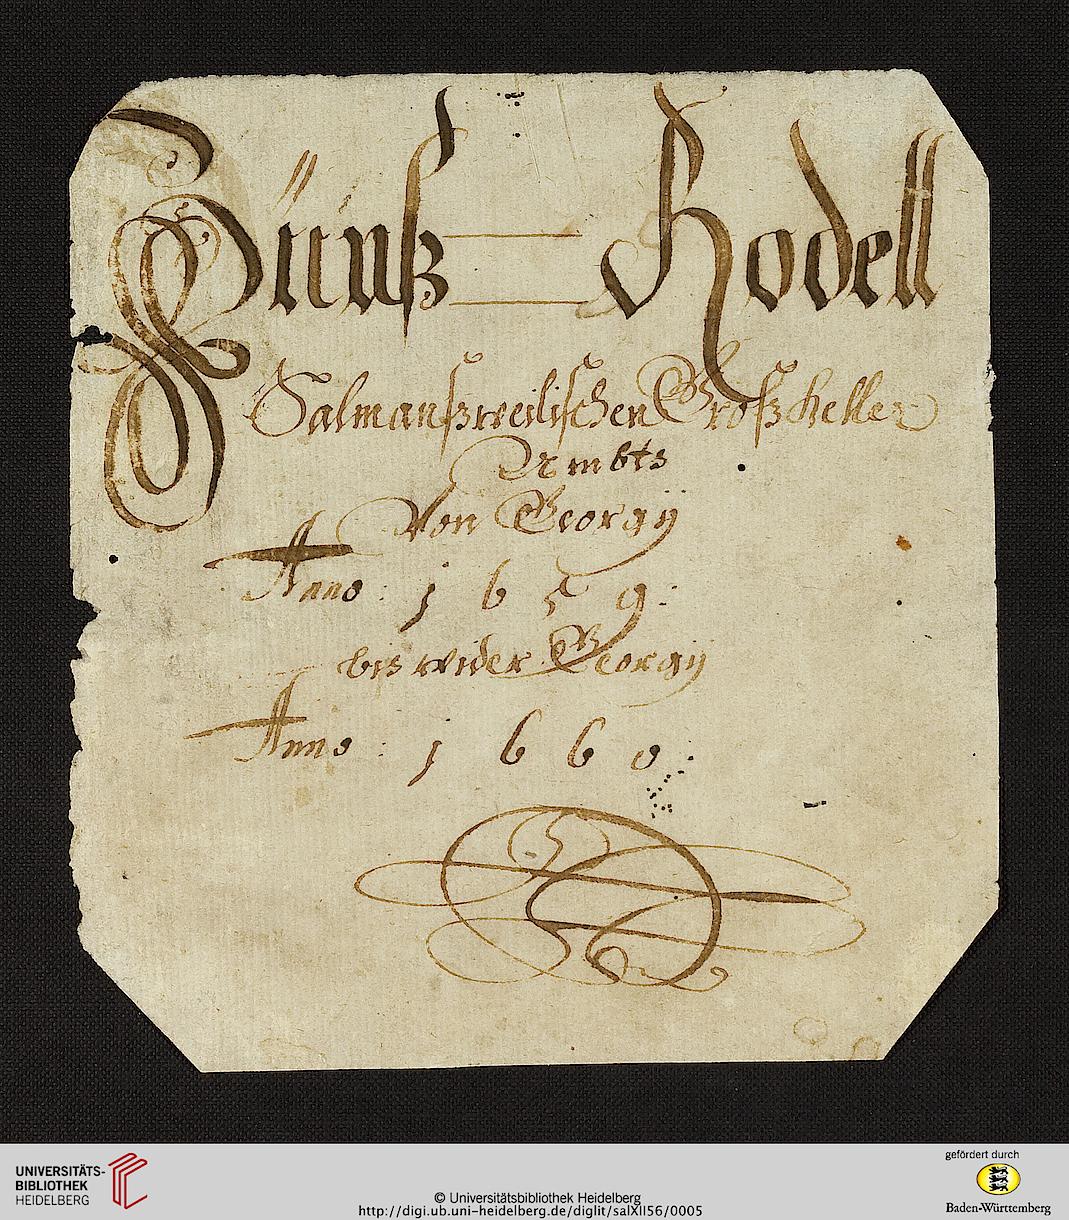 Zünß Rodell
Salmanßweilischen Großkeller
Ambts
Von Georgij
Anno : 1 6 5 9 :
bis wider Georgij
Anno : 1 6 6 0 :
UNIVERSITÄTS-
BIBLIOTHEK
HEIDELBERG
© Universitätsbibliothek Heidelberg
http://digi.ub.uni-heidelberg.de/diglit/salXII56/0005
gefördert durch
Baden-Württemberg